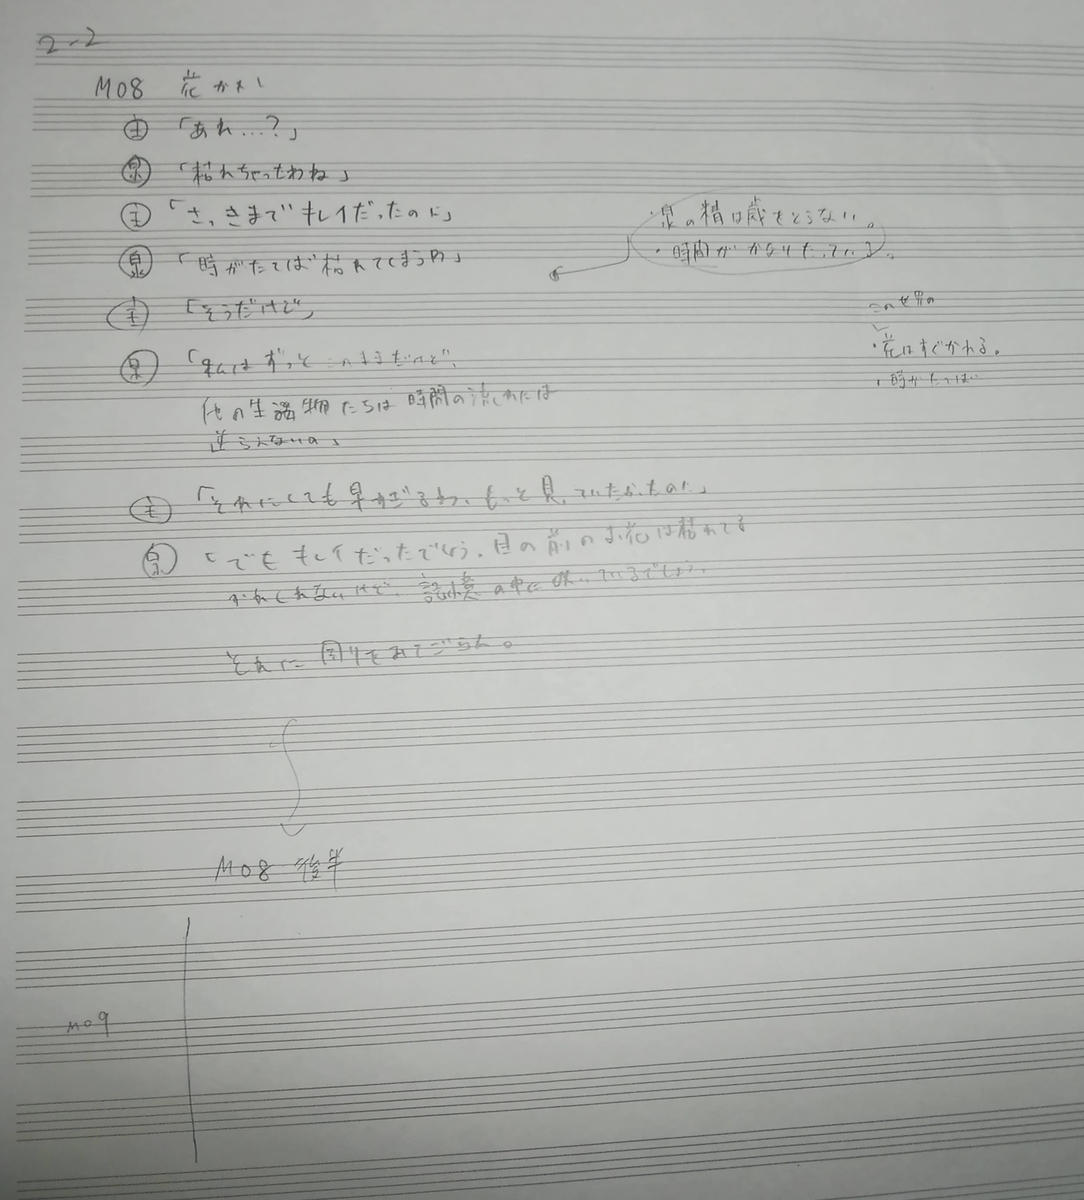 2-2
M08 花かれ
主 「あれ…?」
泉 「枯れちゃったわね」
主 「さっきまでキレイだったのに」
・泉の精は歳をとらない。
・時間がかなりたっている。
泉 「時がたてば枯れてしまうわ」
主 「そうだけど」
この世界の
・花はすぐかれる。
・時がたつのは
泉 「私はずっとこのままだけど、
他の生物たちは時間の流れには
逆らえないの」
主 「それにしても早すぎるわ、もっと見ていたかったのに」
泉 「でもキレイだったでしょう。目の前のお花は枯れてる
かもしれないけど、記憶の中に咲いているでしょう。
それに周りをみてごらん。
M08 後半
M09